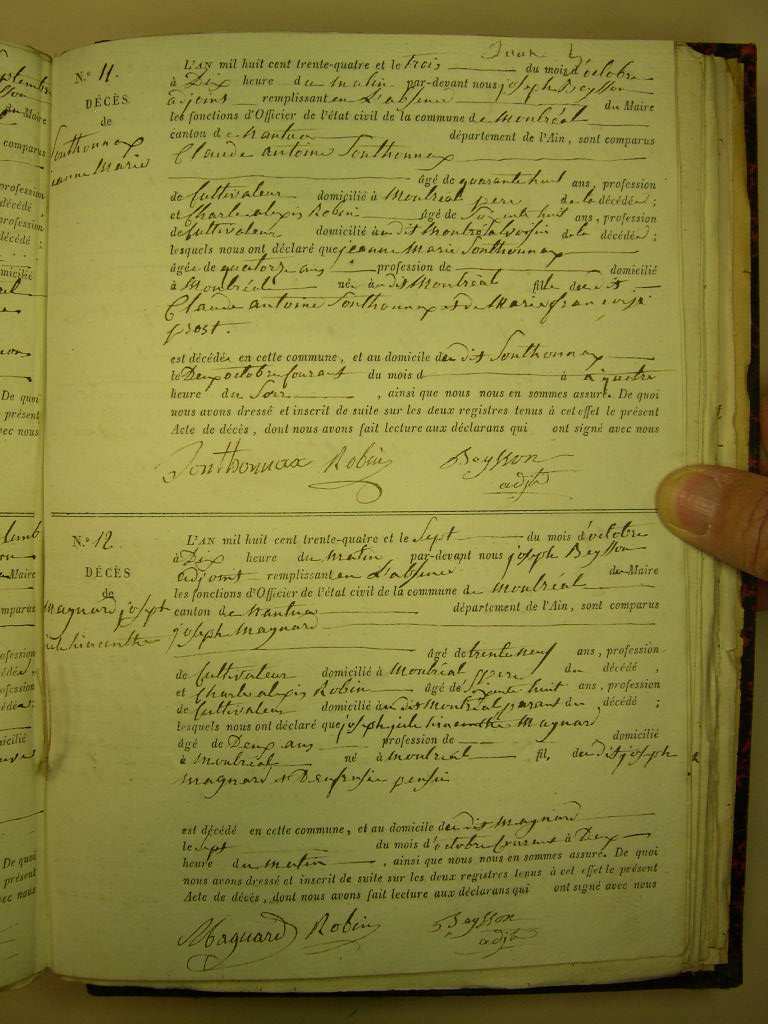 N.º 11.
DÉCÈS
de
Sonthonnax
jeanne Marie
L'AN mil huit cent trente-quatre et le trois du mois d'octobre
à Dix heure du matin par-devant nous joseph Beysson
adjoint remplissant en L'absence du Maire
les fonctions d'Officier de l'état civil de la commune de Montréal
canton de Nantua département de l'Ain, sont comparus
Claude antoine Sonthonnax
âgé de quarante huit ans, profession
de Cultivateur domicilié à Montréal pere de la décédée ;
et Charle alexis Robin âgé de soixente huit ans, profession
de Cultivateur domicilié audit Montréal voisin de la décédée ;
lesquels nous ont déclaré que jeanne Marie Sonthonnax
âgée de quatorze ans profession de domicilié
à Montréal née audit Montréal fille dudit
Claude antoine Sonthonnax et de Marie françoise
prost.
est décédée en cette commune, et au domicile dudit Sonthonnax
le Deux octobre Courant du mois d à quatre
heure du Soir , ainsi que nous nous en sommes assuré. De quoi
nous avons dressé et inscrit de suite sur les deux registres tenus à cet effet le présent
Acte de décès, dont nous avons fait lecture aux déclarans qui ont signé avec nous
Sonthonnax Robin Beysson
adjt
N.º 12.
DÉCÈS
de
Magnard joseph
L'AN mil huit cent trente-quatre et le Sept du mois d'octobre
à Dix heure du matin par-devant nous joseph Beysson
adjoint remplissant en L'absence du Maire
les fonctions d'Officier de l'état civil de la commune de Montréal
canton de Nantua département de l'Ain, sont comparus
joseph Magnard
âgé de trente neuf ans, profession
de Cultivateur domicilié à Montréal pere du décédé ,
et Charle alexis Robin âgé de soixente huit ans, profession
de Cultivateur domicilié audit Montréal parant du décédé ;
lesquels nous ont déclaré que joseph Magnard
âgé de Deux ans profession de domicilié
à Montréal né à Montréal fils dudit joseph
Magnard &
est décédé en cette commune, et au domicile dudit Magnard
le Sept du mois d'octobre Courant à Deux
heure du Matin , ainsi que nous nous en sommes assuré. De quoi
nous avons dressé et inscrit de suite sur les deux registres tenus à cet effet le présent
Acte de décès, dont nous avons fait lecture aux déclarans qui ont signé avec nous
Magnard Robin Beysson
adjt